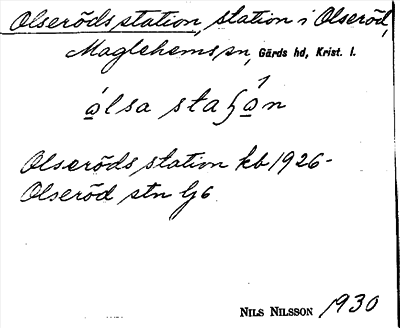 Olseröds station, station i Olseröd,
Maglehems sn, Gärds hd, Krist. l.
Olseröds station kb 1926-
Olseröd stn Gj 6
NILS NILSSON 1930